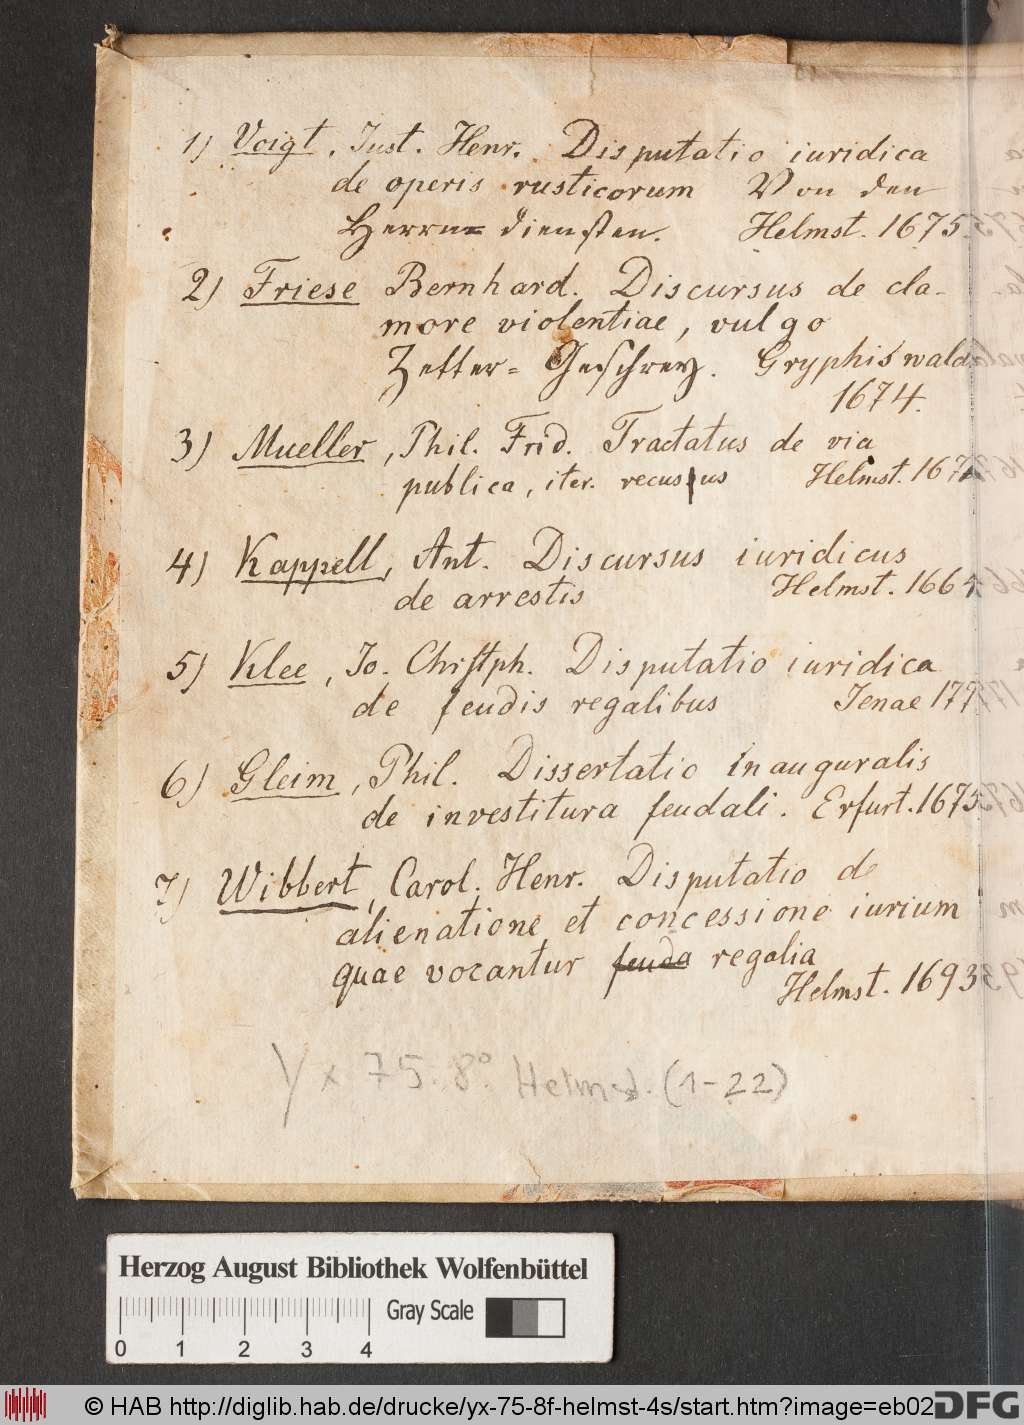 1) Voigt, Just. Henr. Disputatio iuridica
de operis rusticorum Von den
Herrn= diensten. Helmst. 1675.
2) Friese Bernhard. Discursus de cla-
more violentiae, vulgo
Zetter= Geschrey. Gryphiswald
1674.
3) Mueller, Phil. Frid. Tractatus de via
publica, iter. recusus Helmst. 167
4) Kappell, Ant. Discursus iuridicus
de arrestis Helmst. 1664
5) Klee, Jo. Christph. Disputatio iuridica
de feudis regalibus Jenae 177
6) Gleim, Phil. Dissertatio inauguralis
de investitura feudali. Erfurt. 1675
7) Wibbert, Carol. Henr. Disputatio de
alienatione et concessione iurium
quae vocantur feuda regalia
Helmst. 1693
Yx 75. 8° Helmst. (1-22)
Herzog August Bibliothek Wolfenbüttel
Gray Scale
0 1 2 3 4
© HAB http://diglib.hab.de/drucke/yx-75-8f-helmst-4s/start.htm?image=eb02
DFG